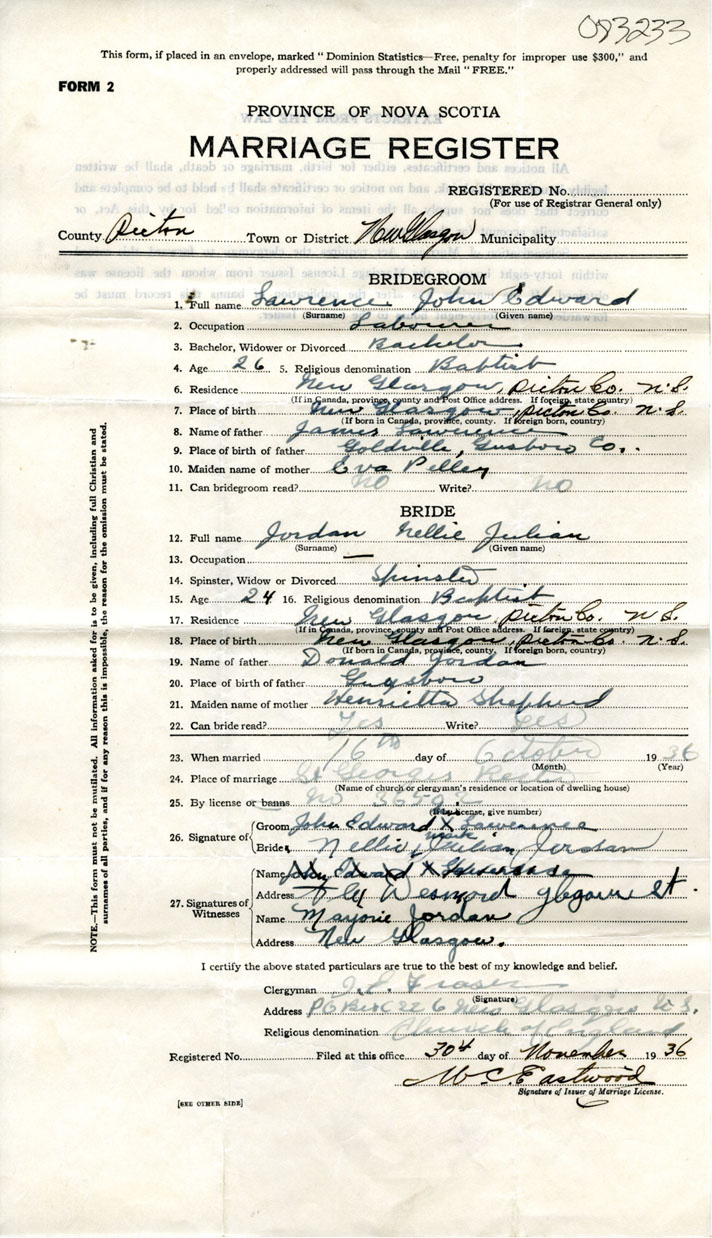 083233
This form, if placed in an envelope, marked "Dominion Statistics—Free, penalty for improper use $300," and
properly addressed will pass through the Mail "FREE."
FORM 2
PROVINCE OF NOVA SCOTIA
MARRIAGE REGISTER
REGISTERED No.
(For use of Registrar General only)
County Pictou Town or District New Glasgow Municipality
BRIDEGROOM
1. Full name Lawrence John Edward
(Surname) (Given name)
2. Occupation Labourer
3. Bachelor, Widower or Divorced Bachelor
4. Age 26 5. Religious denomination Baptist
6. Residence New Glasgow, Pictou Co. N.S.
(If in Canada, province, county and Post Office address. If foreign, state country)
7. Place of birth New Glasgow, Pictou Co. N.S.
(If born in Canada, province, county. If foreign born, country)
8. Name of father James Lawrence
9. Place of birth of father Goldville, Gusboro Co.
10. Maiden name of mother Eva Pelley
11. Can bridegroom read? No Write? No
BRIDE
12. Full name Jordan Nellie Julian
(Surname) (Given name)
13. Occupation —
14. Spinster, Widow or Divorced Spinster
15. Age 24 16. Religious denomination Baptist
17. Residence New Glasgow, Pictou Co. N.S.
(If in Canada, province, county and Post Office address. If foreign, state country)
18. Place of birth New Glasgow, Pictou Co. N.S.
(If born in Canada, province, county. If foreign born, country)
19. Name of father Donald Jordan
20. Place of birth of father Guysboro
21. Maiden name of mother Henrietta Shepherd
22. Can bride read? Yes Write? Yes
23. When married 16th day of October 1936
(Month) (Year)
24. Place of marriage St Georges Rectory
(Name of church or clergyman's residence or location of dwelling house)
25. By license or banns No
(If by license, give number)
26. Signature of Groom John Edward X Lawrence
mark
Bride Nellie Julian Jordan
27. Signatures of Witnesses
Name Edward X
Address St.
Name Marjorie Jordan
Address New Glasgow.
I certify the above stated particulars are true to the best of my knowledge and belief.
Clergyman Fraser
(Signature)
Address PO Box 226 New Glasgow N.S.
Religious denomination Church of England
Registered No. Filed at this office 30th day of November 1936
Mc. Eastwood
Signature of Issuer of Marriage License.
[SEE OTHER SIDE]
NOTE.—This form must not be mutilated. All information asked for is to be given, including full Christian and
surnames of all parties, and if for any reason this is impossible, the reason for the omission must be stated.